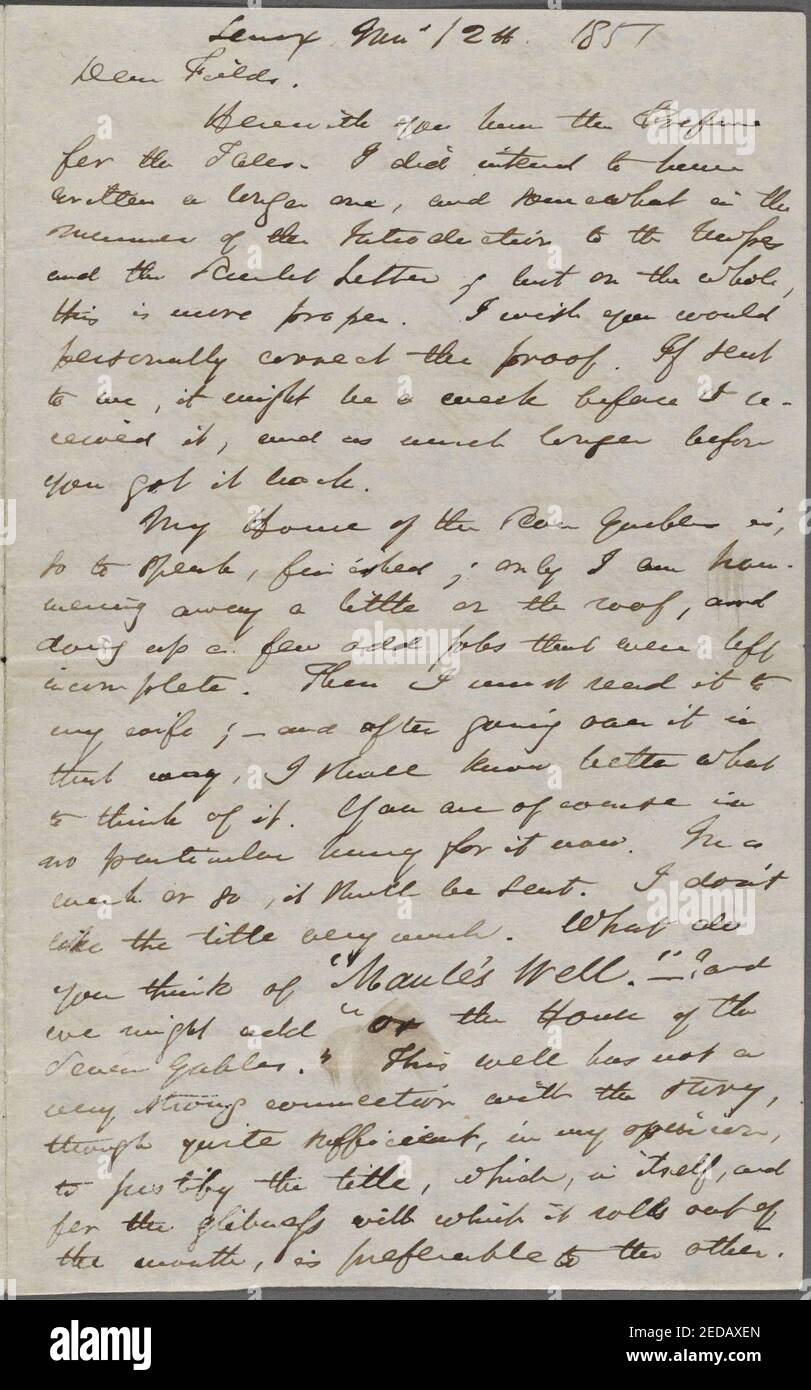 Lenox, Jany 12th 1851
Dear Fields.
Herewith you have the Preface
for the Tales. I did intend to have
written a longer one, and somewhat in the
manner of the Introduction to the Mosses
and the Scarlet Letter; but on the whole,
this is more proper. I wish you would
personally correct the proof. If sent
to me, it might be a week before I re-
ceived it, and as much longer before
you got it back.
My House of the Seven Gables is,
so to speak, finished; only I am ham-
mering away a little on the roof, and
doing up a few odd jobs that were left
incomplete. Then I must read it to
my wife; — and after going over it in
that way, I shall know better what
to think of it. You are of course in
no particular hurry for it now. In a
week or so, it shall be sent. I don't
like the title very much. What do
you think of "Maule's Well."—? and
we might add "or the House of the
Seven Gables." This well has not a
very strong connection with the story,
though quite sufficient, in my opinion,
to justify the title, which, in itself, and
for the glibness with which it rolls out of
the mouth, is preferable to the other.
alamy
Image ID: 2EDAXEN
www.alamy.com